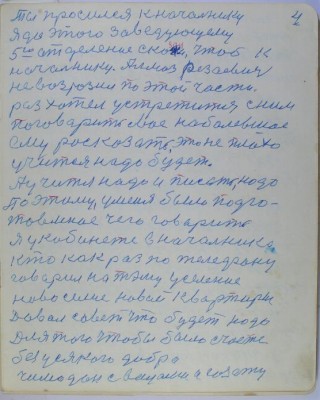 4
Ты просился к начальнику
я до этого заведующему
5ым отделение скажи, чтоб к
начальнику. Алмаз резаевич
невозрозил по этой части.
раз хотел устретится с ним
поговорить свое наболевшое
ему росказать, это не плохо
учится надо будет.
Ну учится надо и писать, надо
поэтому, у меня было подго-
товленное чего говорить
я у кобинете в началника,
кто как раз по теледрону
говарил на тэму уселение
новоселие новой квартиры
Давал совет что будет надо
для того чтобы было счасте
без усякого добра
чимодан с вещами